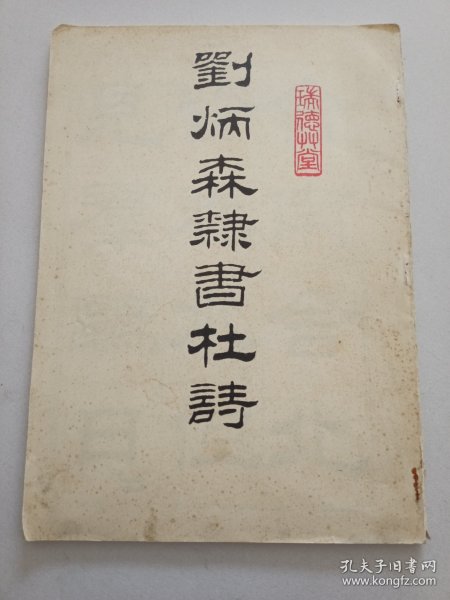 劉炳森隸書杜詩
瑞德草堂
孔夫子旧书网
www.kongfz.com